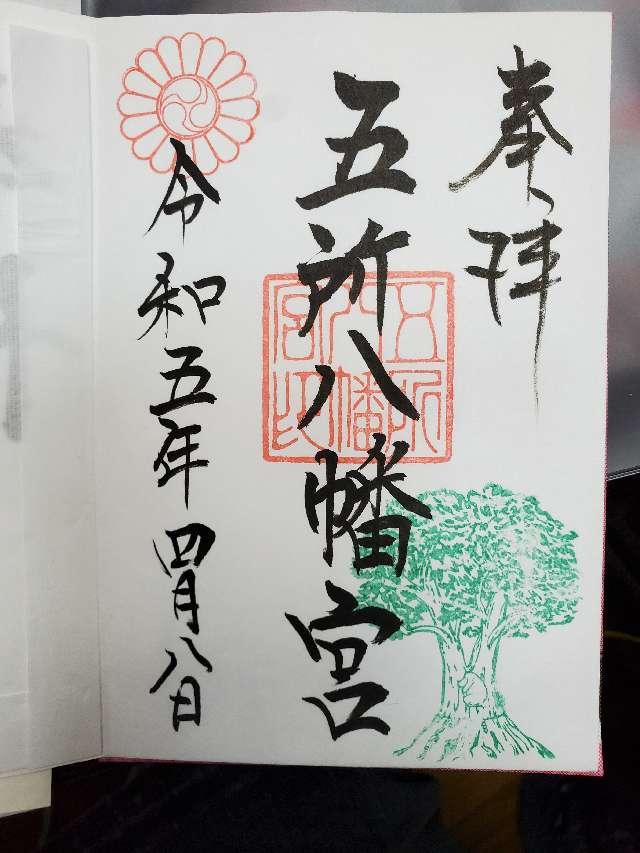 奉拝
五所八幡宮
五所八幡宮印
令和五年四月八日